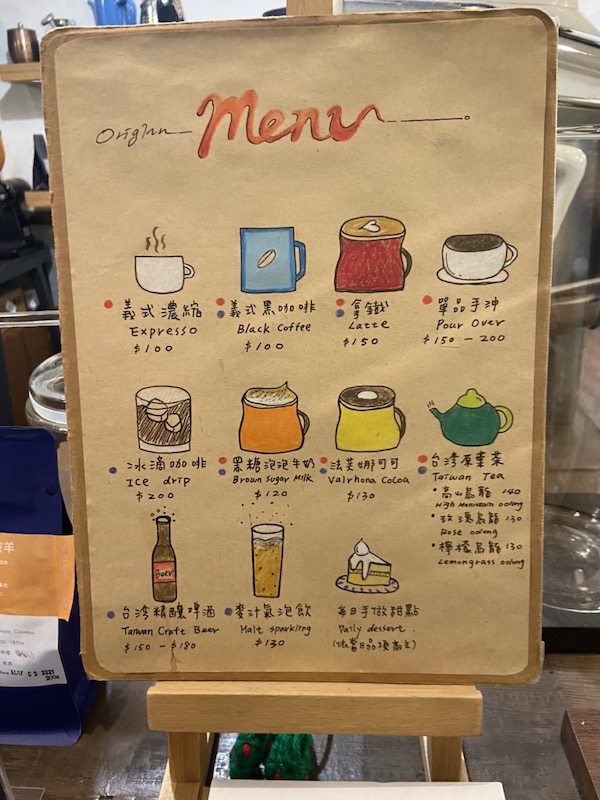 Originn
Menu
義式濃縮
Expresso
$100
義式黑咖啡
Black Coffee
$100
拿鐵
Latte
$150
單品手沖
Pour Over
$150 - 200
冰滴咖啡
Ice drip
$200
黑糖泡泡牛奶
Brown Sugar Milk
$120
法芙娜可可
Valrhona Cocoa
$130
台灣原葉茶
Taiwan Tea
高山烏龍 140
High Mountain oolong
玫瑰烏龍 130
Rose oolong
檸檬烏龍 130
Lemongrass oolong
Beer
台灣精釀啤酒
Taiwan Craft Beer
$150 - $180
麥汁氣泡飲
Malt sparkling
$130
每日手做甜點
Daily dessert